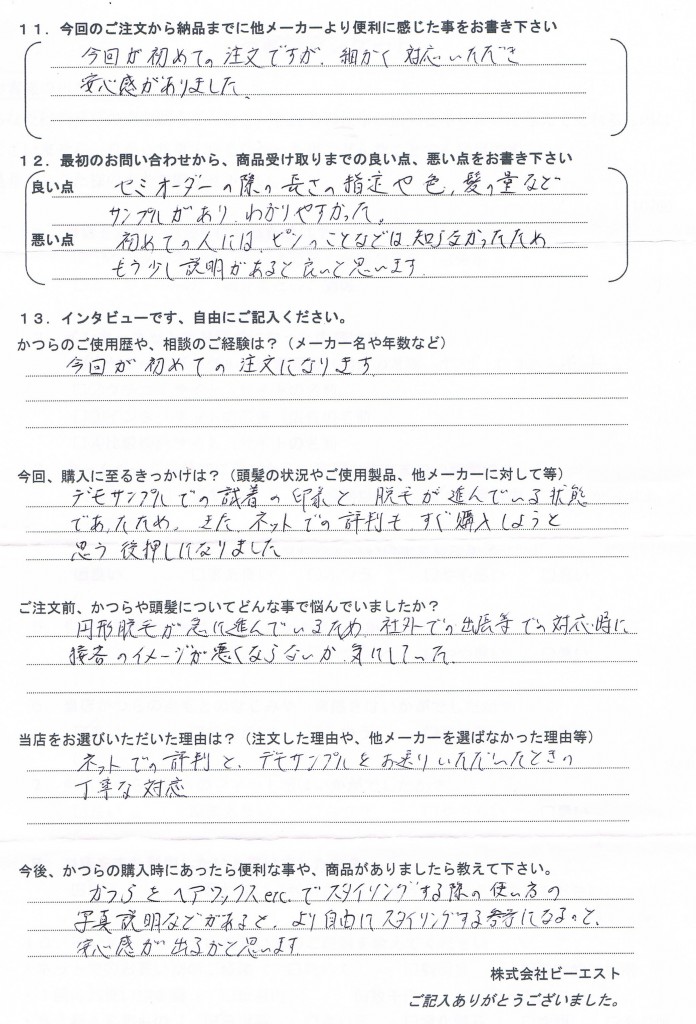 １１．今回のご注文から納品までに他メーカーより便利に感じた事をお書き下さい
今回が初めての注文ですが、細かく対応いただき
安心感がありました。
１２．最初のお問い合わせから、商品受け取りまでの良い点、悪い点をお書き下さい
良い点 セミオーダーの際の長さの指定や色，髪の量など
サンプルがあり、わかりやすかった。
悪い点 初めての人には、ピンのことなどは知らなかったため
もう少し説明があると良いと思います．
１３．インタビューです、自由にご記入ください。
かつらのご使用歴や、相談のご経験は？（メーカー名や年数など）
今回が初めての注文になります
今回、購入に至るきっかけは？（頭髪の状況やご使用製品、他メーカーに対して等）
デモサンプルでの試着の印象と、脱毛が進んでいる状態
であったため。また、ネットでの評判も すぐ購入しようと
思う後押しになりました
ご注文前、かつらや頭髪についてどんな事で悩んでいましたか？
円形脱毛が急に進んでいるため 社外での出張等での対応時に
接客のイメージが悪くならないか 気にしてった．
当店をお選びいただいた理由は？（注文した理由や、他メーカーを選ばなかった理由等）
ネットでの評判と、デモサンプルをお送りいただいたときの
丁寧な対応
今後、かつらの購入時にあったら便利な事や、商品がありましたら教えて下さい。
かつらをヘアワックスerc.でスタイリングする際の使い方の
写真説明などがあると、より自由にスタイリングする参考になるのと、
安心感が出るかと思います
株式会社ビーエスト
ご記入ありがとうございました。